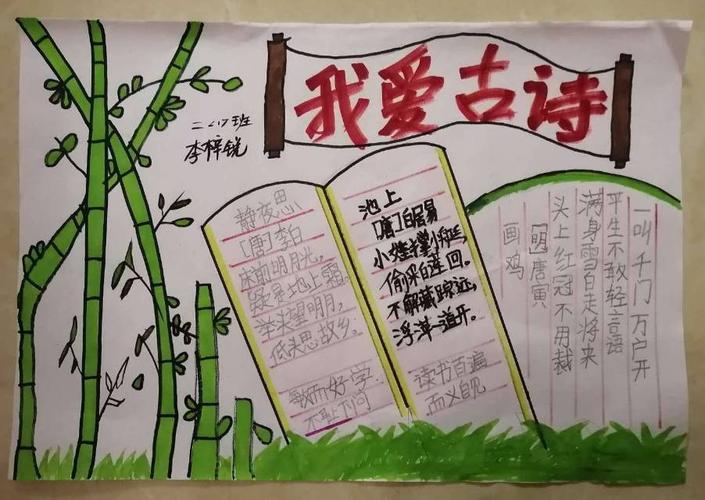 我爱古诗
二(7)班
李梓锐
静夜思
[唐]李白
床前明月光,
疑是地上霜。
举头望明月,
低头思故乡。
敏而好学.
不耻下问
池上
[唐]白居易
小娃撑小艇,
偷采白莲回。
不解藏踪迹,
浮萍一道开。
读书百遍
而义自见
画鸡
[明]唐寅
头上红冠不用裁
满身雪白走将来
平生不敢轻言语
一叫千门万户开